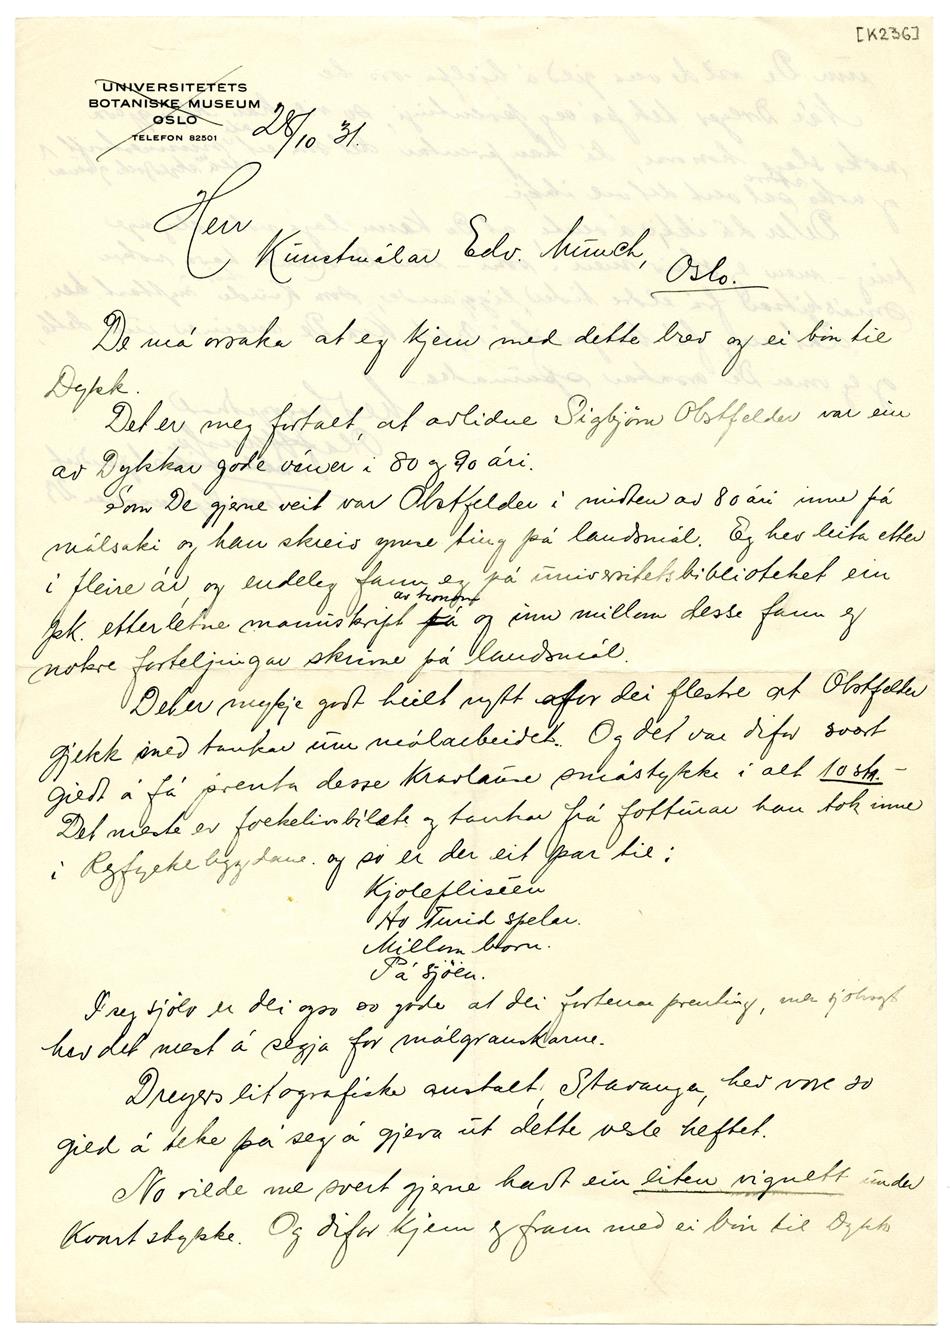 [K236]
UNIVERSITETETS
BOTANISKE MUSEUM
OSLO
TELEFON 82501
28/10 31.
Herr
Kunstmålar Edv. Munch,
Oslo.
De må orsaka at eg kjem med dette brev og ei bön til
Dykk.
Det er meg fortalt, at avlidne Sigbjörn Obstfelder var ein
av Dykkar gode våner i 80 og 90 åri.
Som De gjerne veit var Obstfelder i midten av 80 åri inne på
målsaki og han skreiv ymse ting på landsmål. Eg hev leita etter
i fleire år, og endeleg fann eg på universitetsbiblioteket ein
pk. etterletne manuskript av honom og inn millom desse fann eg
nokre forteljingar skrivne på landsmål.
Det er mykje godt heilt nytt for dei flestre at Obstfelder
gjekk med tankar um målarbeidet. Og det var difor svært
gjedt å få prenta desse kravlause småstykke i alt 10 stk. –
Det meste er folkelivsbilæte og tankar frå fotturar han tok inne
i Ryfylke byggdane. og so er der eit par til:
Kjolefliséen
Ho Turid spelar.
Millom born.
På sjöen.
I seg sjölv er dei og so gode at dei fortener prenting, men sjölvsagt
hev det mest å segja for målgranskarne.
Dreyers litografiske anstalt, Stavanger, hev vore so
gild å teke på seg å gjeva ut dette vesle heftet.
No vilde me svert gjerne havt ein liten vignett under
kvart stykke. Og difor kjem eg fram med ei bön til Dykk